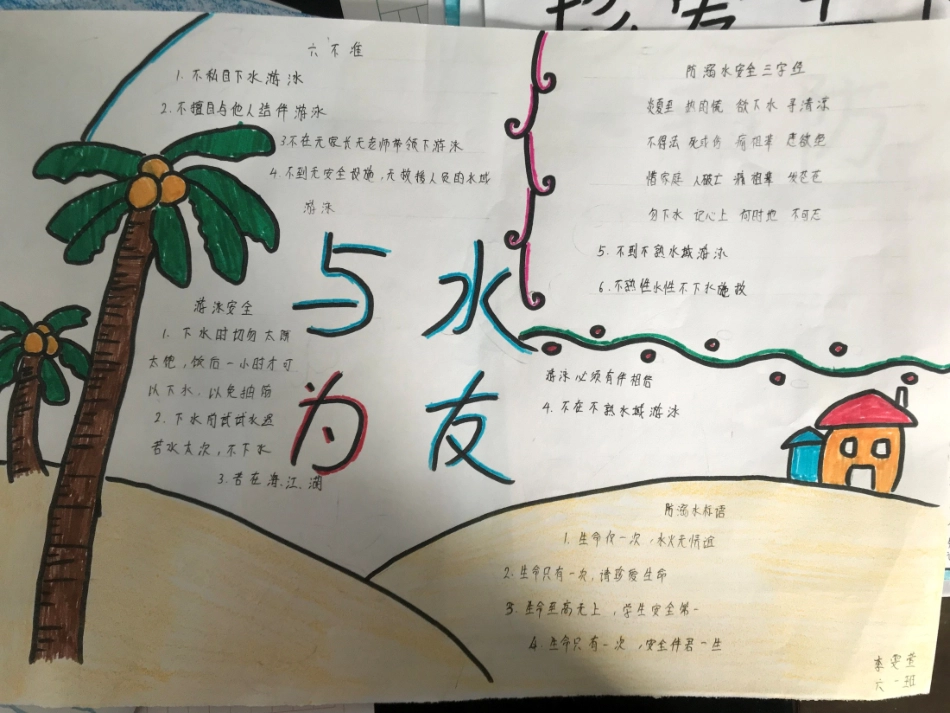 六不准
1. 不私自下水游泳
2. 不擅自与他人结伴游泳
3不在无家长无老师带领下游泳
4. 不到无安全设施,无救援人员的水域
游泳
防溺水安全三字经
炎夏至 热的慌 欲下水 寻清凉
不得法 死或伤
惜家庭 人破亡
勿下水 记心上 何时地 不可忘
5. 不到不熟水域游泳
6. 不熟悉水性不下水施救
与水
为友
游泳安全
1. 下水时切勿太饿
太饱,饭后一小时才可
以下水,以免抽筋
2. 下水前试试水温
若水太次,不下水
3. 若在海、江、湖
游泳必须有伴相陪
4. 不在不熟水域游泳
防溺水标语
1. 生命仅一次,水火无情
2. 生命只有一次,请珍爱生命
3. 生命至高无上,学生安全第一
4. 生命只有一次,安全伴君一生
李雯
六一班